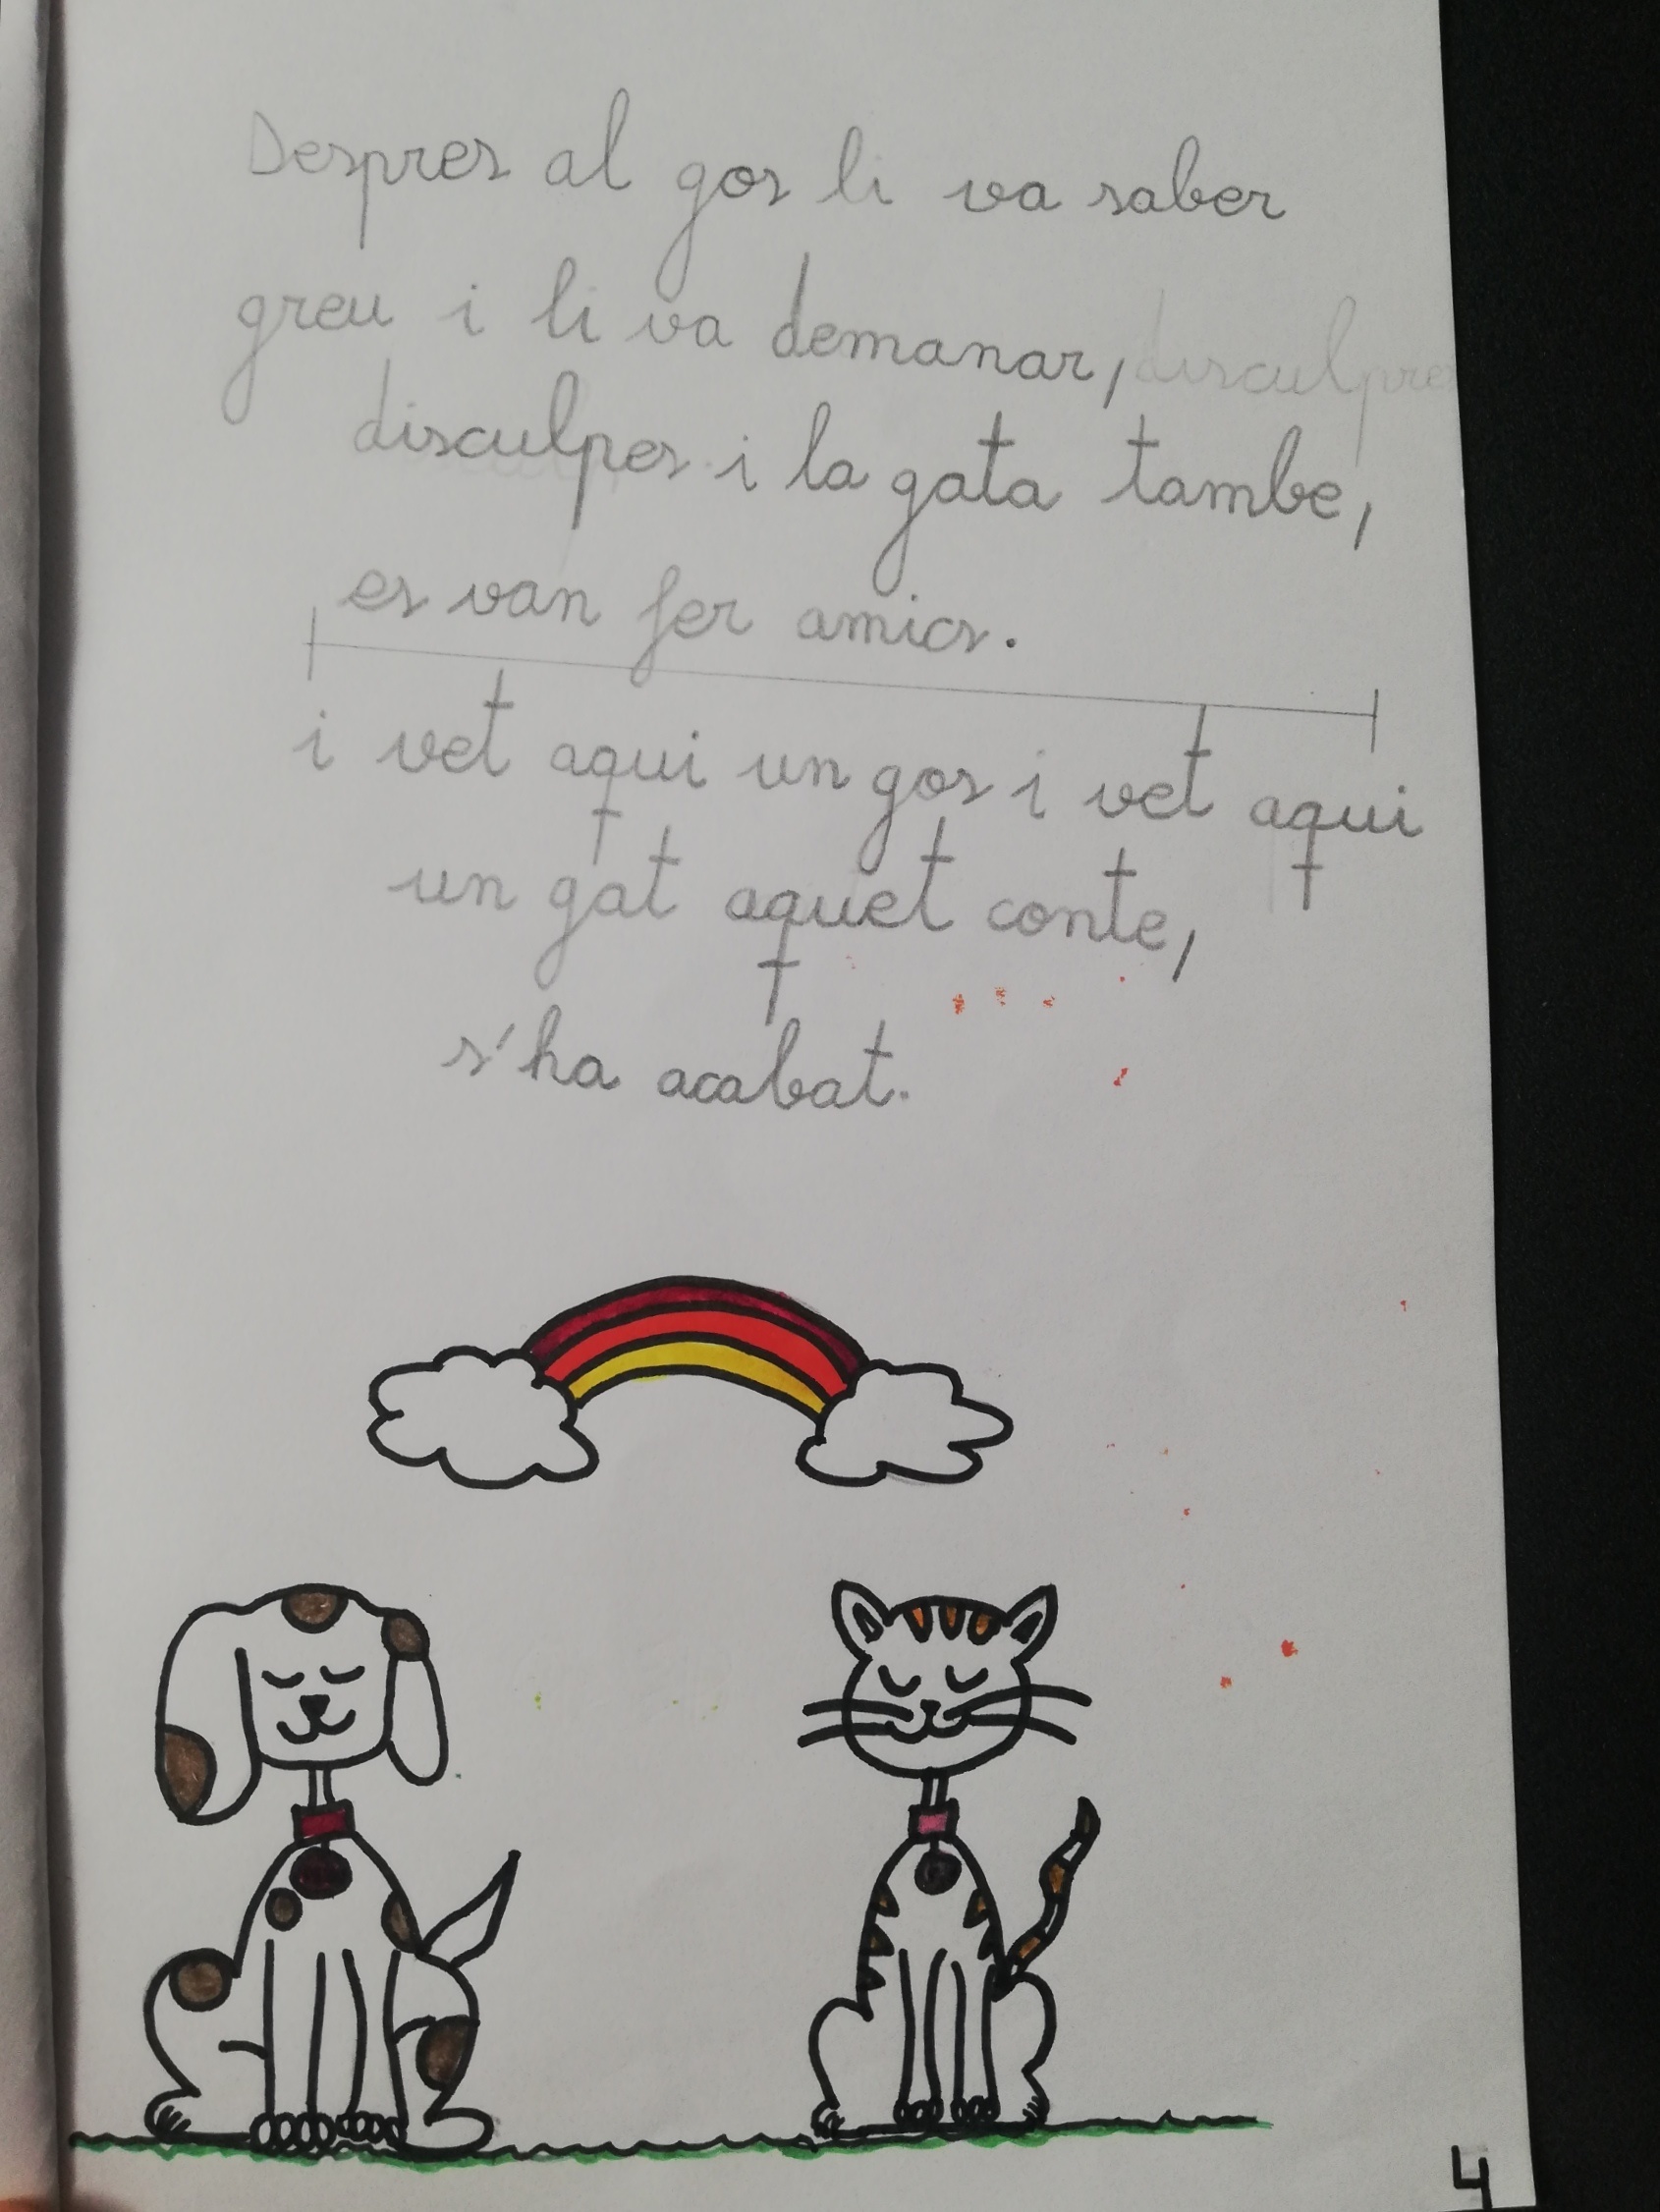 Despres al gos li va saber
greu i li va demanar, disculpe
disculpes i la gata tambe,
es van fer amics.
i vet aqui un gos i vet aqui
un gat aquet conte,
s'ha acabat.
4